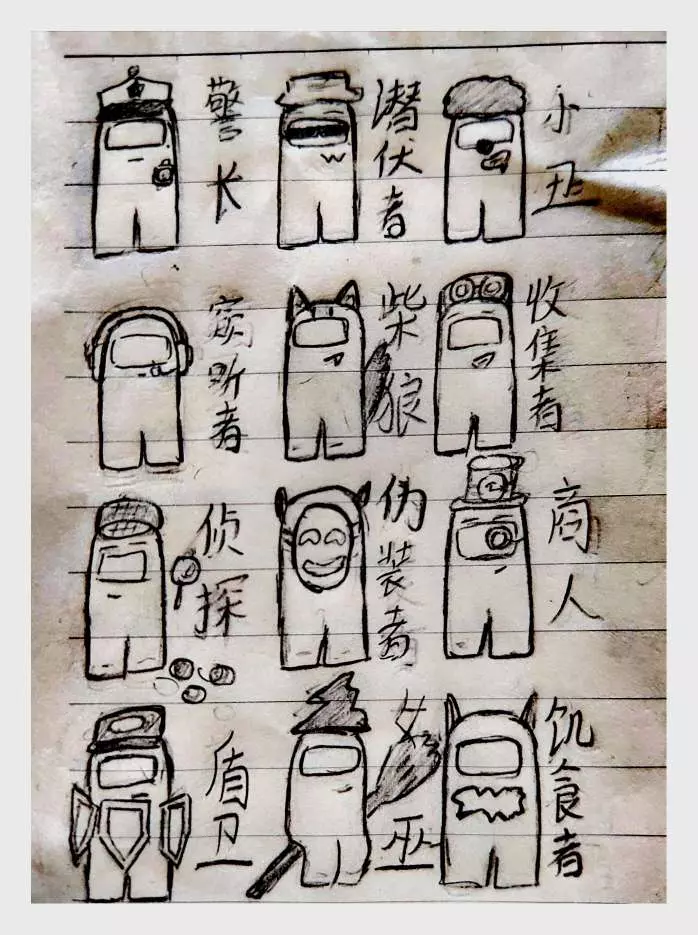 警长
潜伏者
小丑
窃听者
柴狼
收集者
侦探
伪装者
商人
盾卫
女巫
饥食者